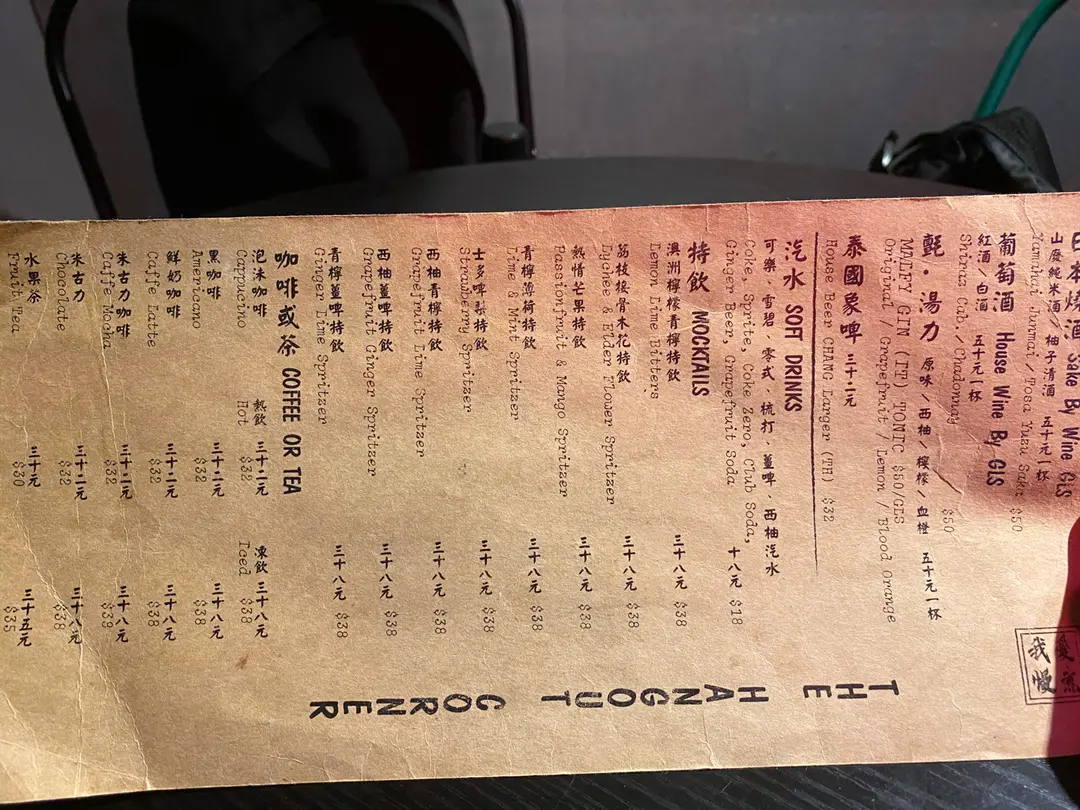 日本燒酒 Sake By Wine Gls
山廢純米酒／柚子清酒 五十元一杯
Yamahai Junmai / Tosa Yuzu Sake $50
葡萄酒 House Wine By GlS
紅酒／白酒 五十元一杯
Shiraz Cab. / Chadonnay $50
氈・湯力 原味／西柚／檸檬／血橙 五十元一杯
MALFY GIN (IT) TONIC $50/GLS
Original / Grapefruit / Lemon / Blood Orange
泰國象啤 三十二元
House Beer CHANG Larger (TH) $32
汽水 SOFT DRINKS
可樂、雪碧、零式、梳打、薑啤、西柚汽水
Coke, Sprite, Coke Zero, Club Soda,
Ginger Beer, Grapefruit Soda 十八元 $18
特飲 MOCKTAILS
澳洲檸檬青檸特飲
Lemon Lime Bitters 三十八元 $38
荔枝接骨木花特飲
Lychee & Elder Flower Spritzer 三十八元 $38
熱情芒果特飲
Passionfruit & Mango Spritzer 三十八元 $38
青檸薄荷特飲
Lime & Mint Spritzer 三十八元 $38
士多啤梨特飲
Strawberry Spritzer 三十八元 $38
西柚青檸特飲
Grapefruit Lime Spritzer 三十八元 $38
西柚薑啤特飲
Grapefruit Ginger Spritzer 三十八元 $38
青檸薑啤特飲
Ginger Lime Spritzer 三十八元 $38
咖啡或茶 COFFEE OR TEA
熱飲 凍飲
Hot Iced
泡沫咖啡 三十二元 三十八元
Cappucino $32 $38
黑咖啡 三十二元 三十八元
Americano $32 $38
鮮奶咖啡 三十二元 三十八元
Cafe Latte $32 $38
朱古力咖啡 三十二元 三十八元
Cafe Mocha $32 $38
朱古力 三十二元 三十八元
Chocolate $32 $38
水果茶 三十元 三十五元
Fruit Tea $30 $35
THE HANGOUT CORNER
我慢